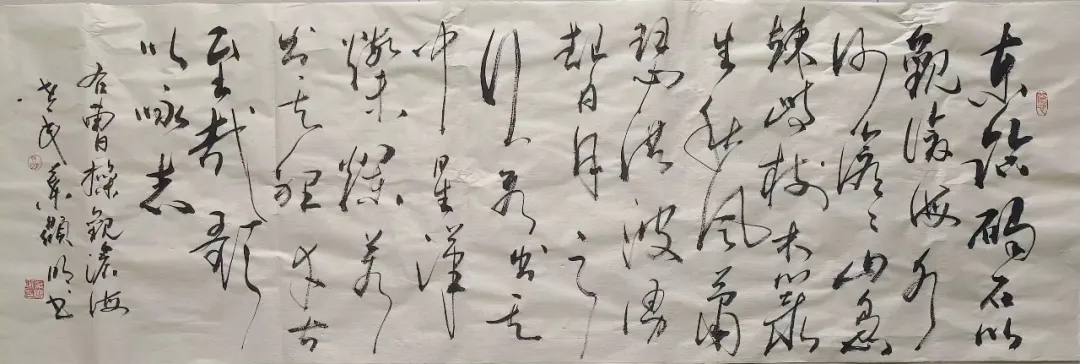 東臨碣石以
觀滄海水
何澹々山島
竦峙樹木叢
生秋風蕭
瑟洪波湧
起日月之
行若出其
中星漢
燦爛若
出其裡幸甚
至哉歌
以詠志
右曹操觀滄海
顯明书